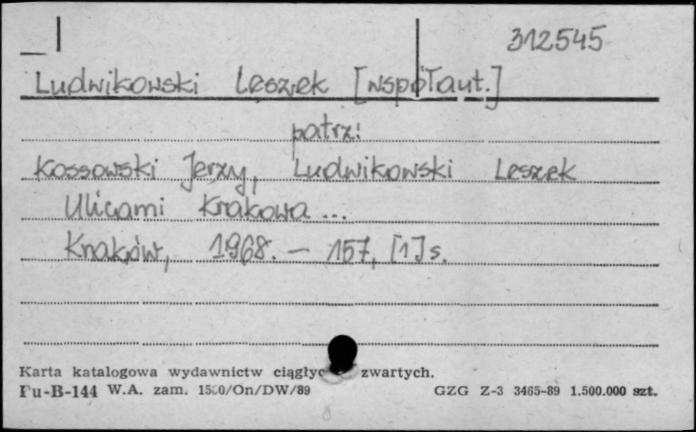 312545
Ludwikowski Leszek [współaut.]
patrz:
Kossowski Jerzy, Ludwikowski Leszek
Ulicami Krakowa ...
Kraków, 1968. — 157, [1] s.
Karta katalogowa wydawnictw zwartych.
Pu-B-144 W.A. zam. /On/DW/89 GZG Z-3 3465-89 1.500.000 szt.